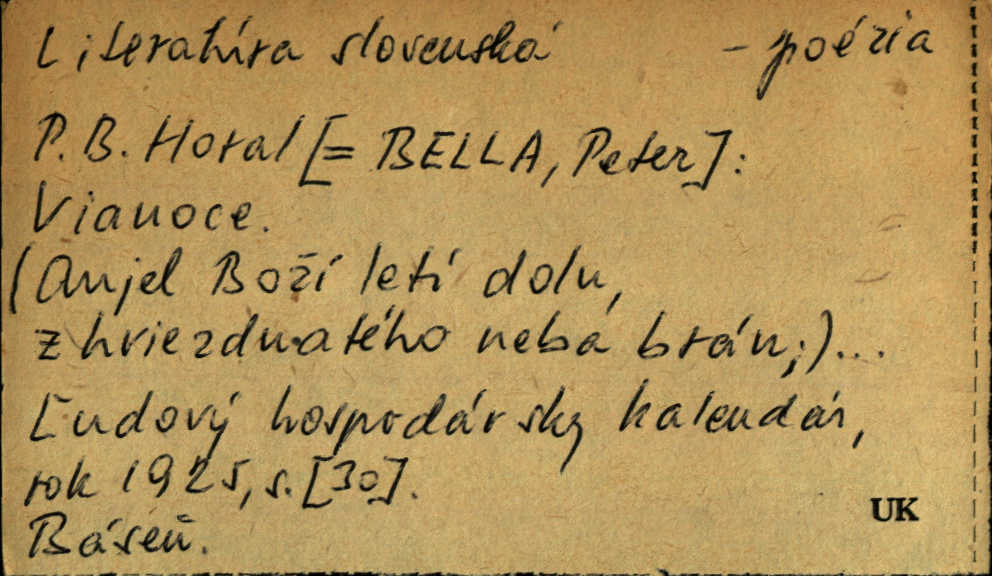 Literatúra slovenská - poézia
P.B. Horal [= BELLA, Peter]:
Vianoce.
(Anjel Boží letí dolu,
z hviezdnatého neba brán;)...
Ľudový hospodársky kalendár,
rok 1925, s. [30].
Báseň.
UK